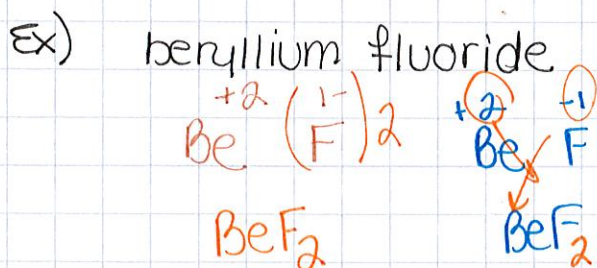 Ex) beryllium fluoride
+2 1- +2 -1
Be (F)2 Be F
BeF2 BeF2